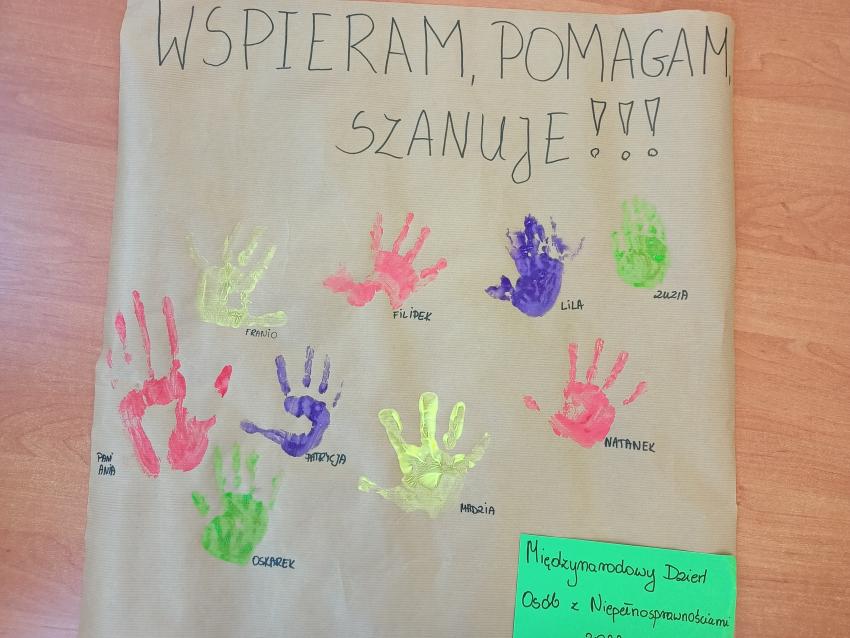 WSPIERAM, POMAGAM,
SZANUJE!!!
FRANIO
FILIPEK
LILA
ZUZIA
PANI
ANIA
PATRYCJA
MADZIA
NATANEK
OSKAREK
Międzynarodowy Dzień
Osób z Niepełnosprawnościami